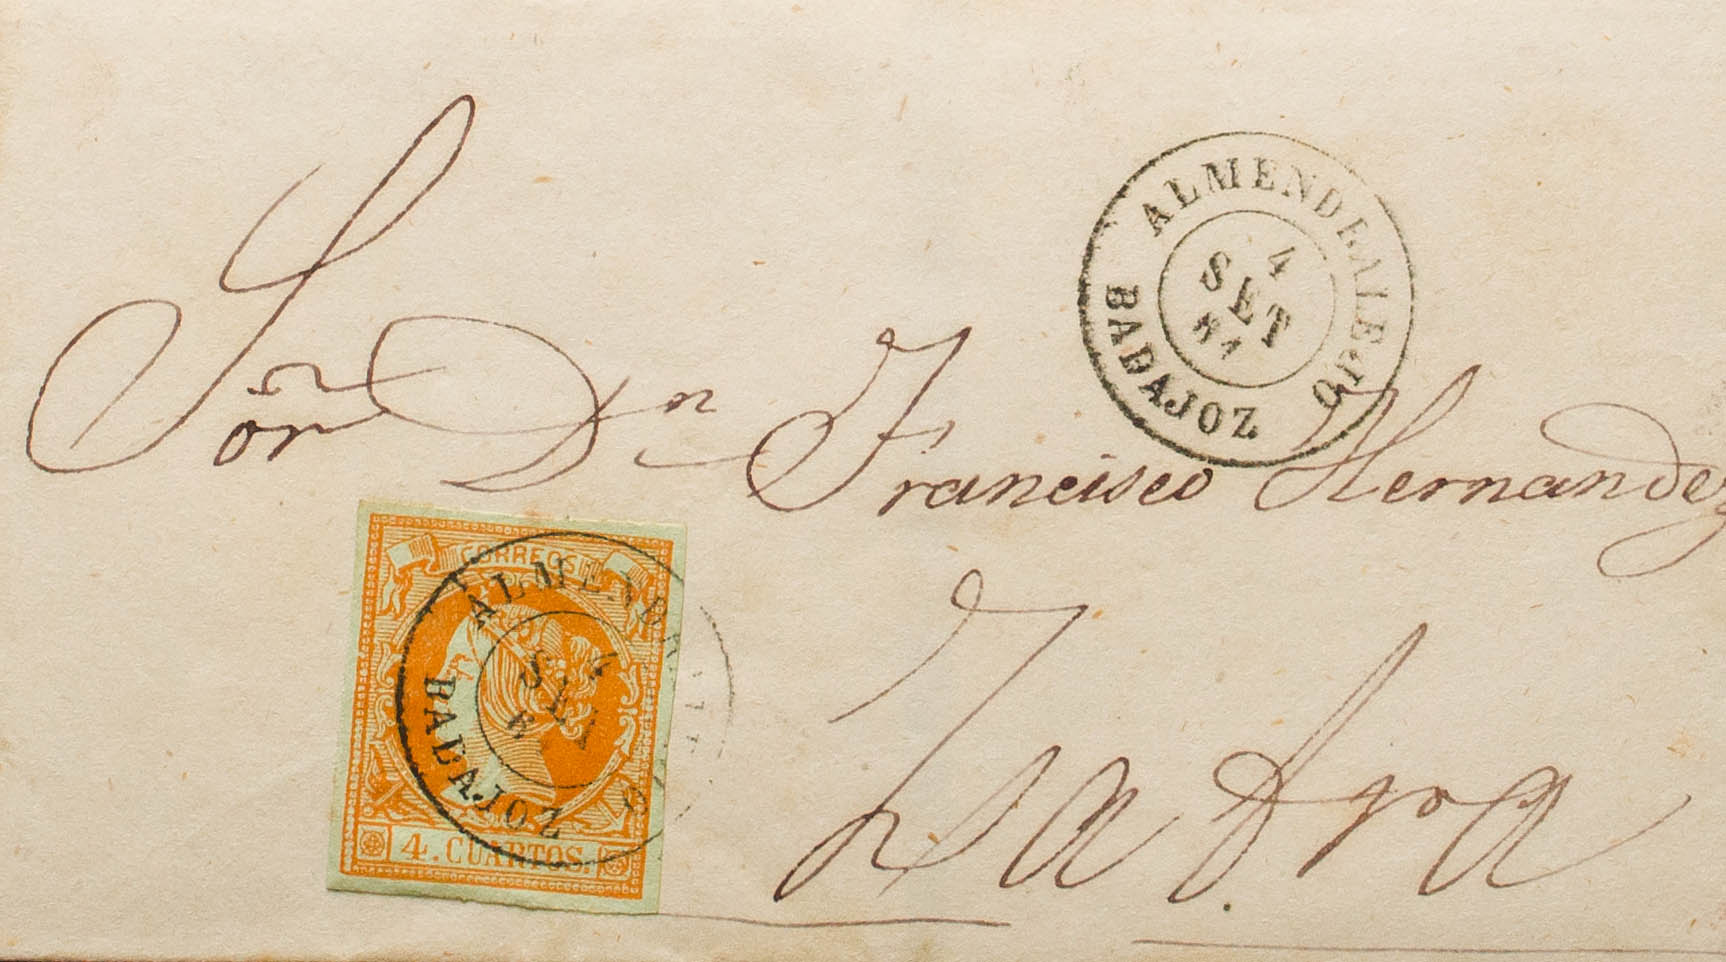 ALMENDRALEJO
4
SET
61
BADAJOZ
Sor. Dn Francisco Hernandez
Zafra
CORREOS
ALMENDRALEJO
4
SET
BADAJOZ
4. CUARTOS.